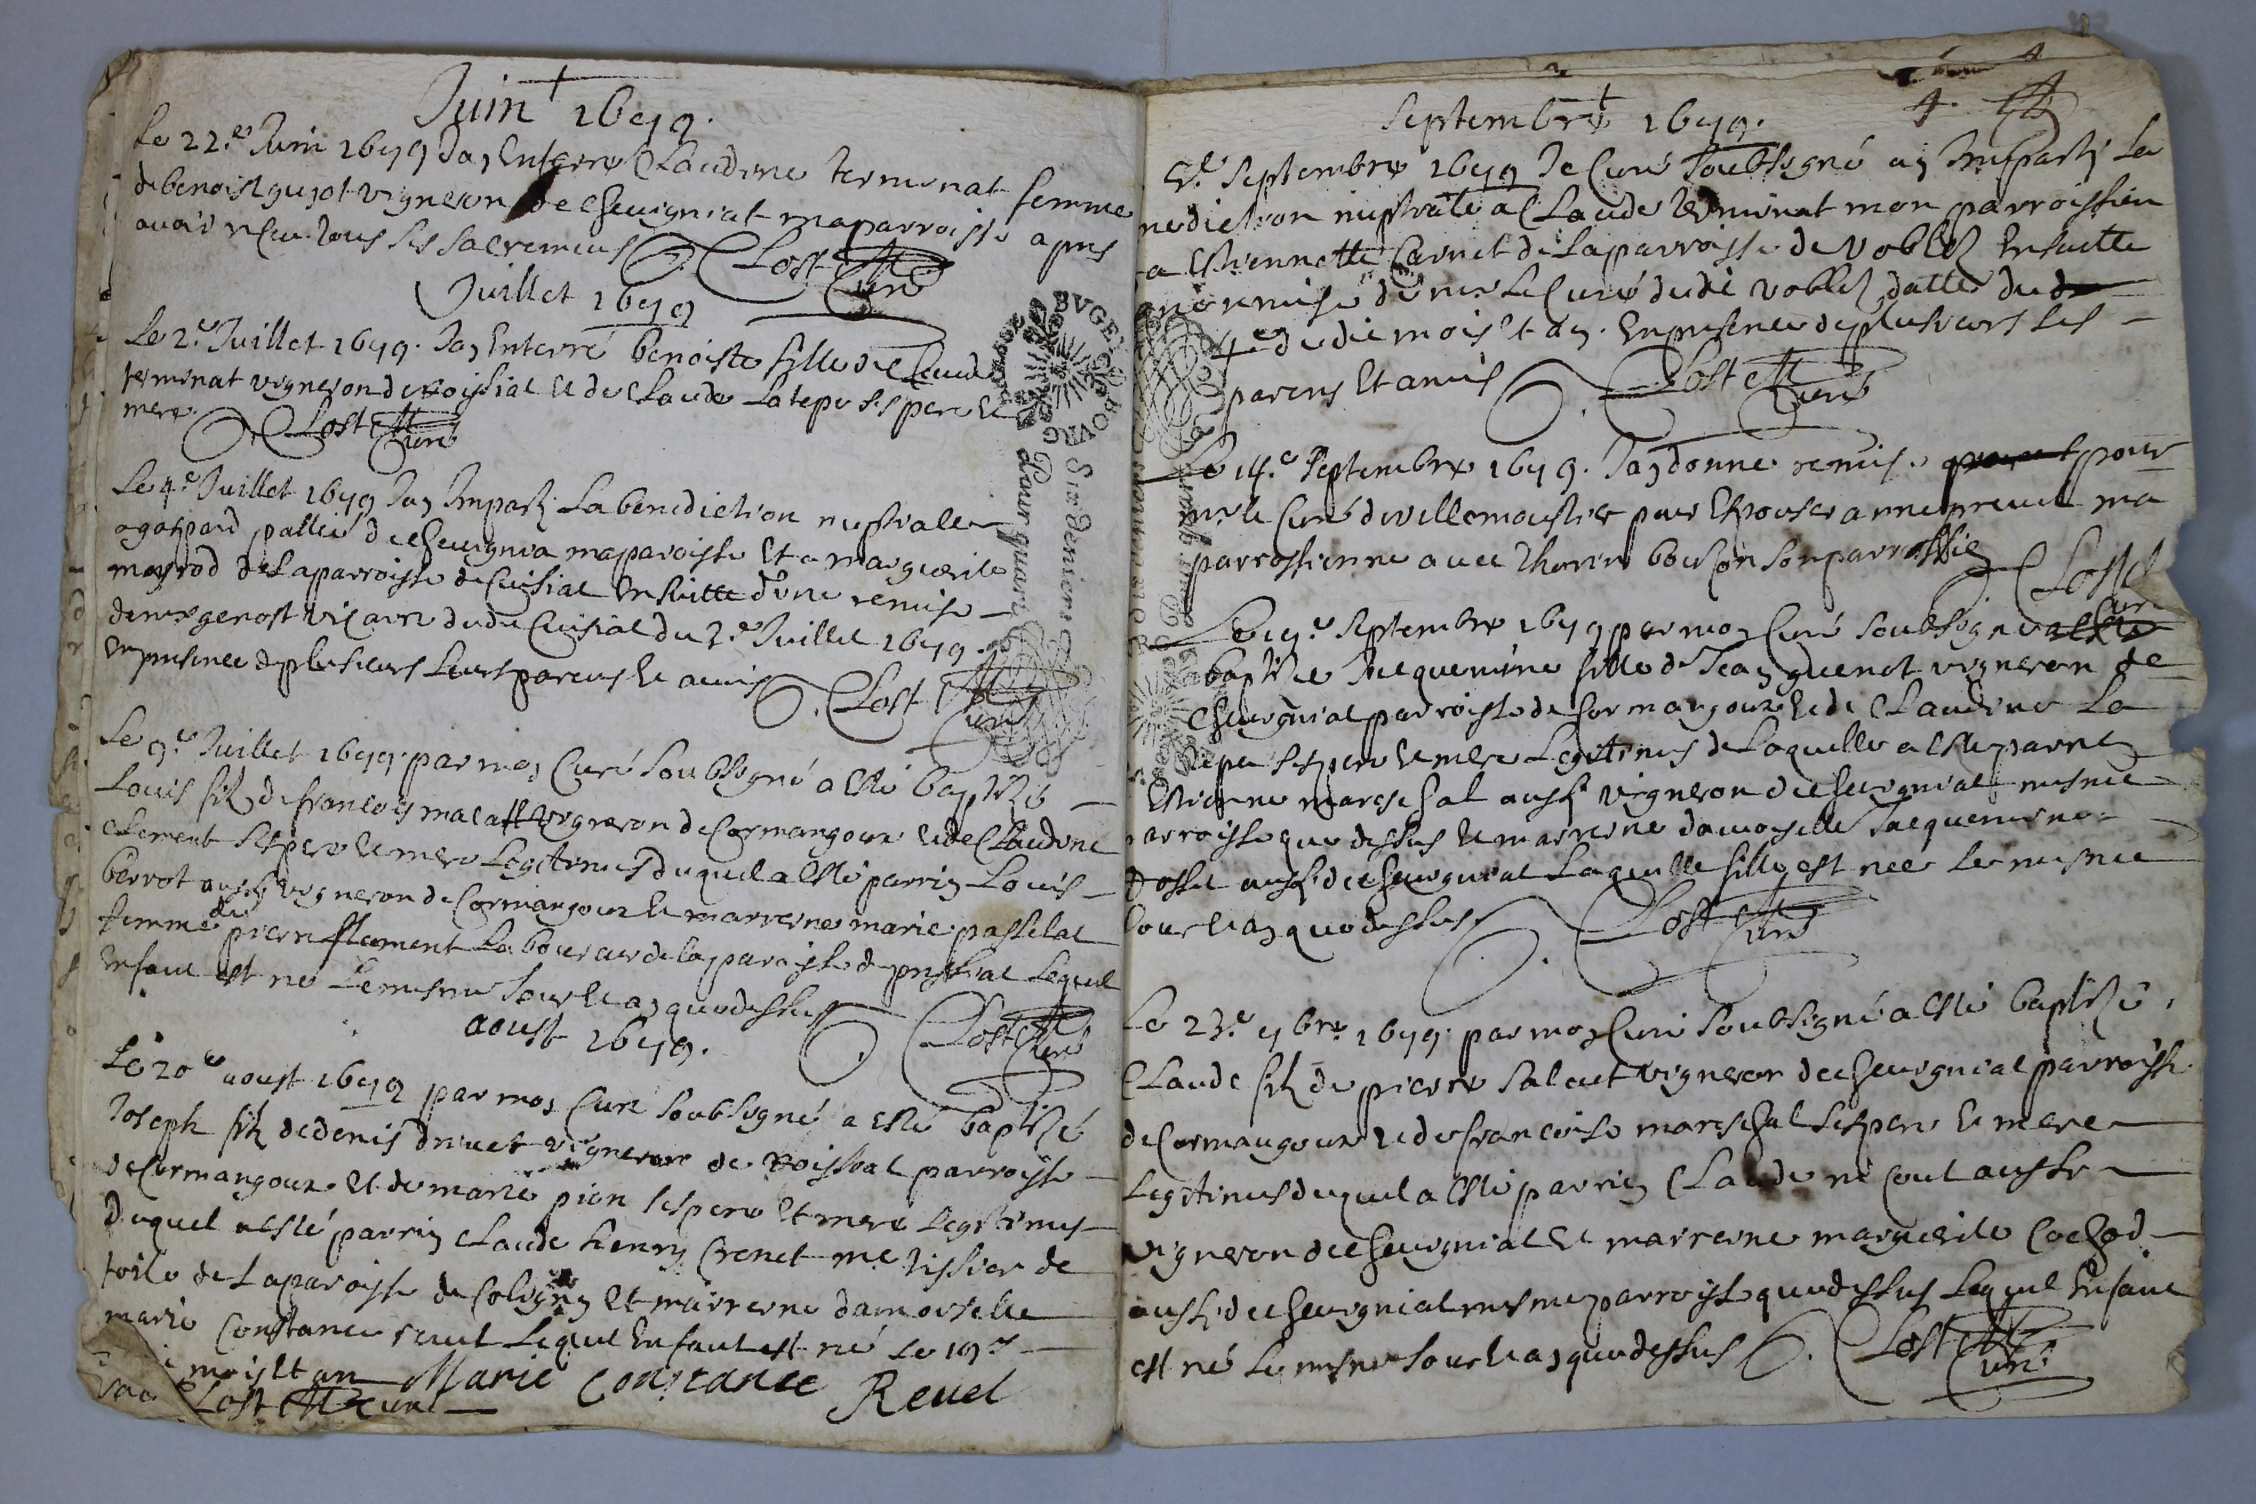 Juin 1679.
Le 22.e Juin 1679 Jay Enterré Claudine terminat femme
de benoist guyot vigneron de Cheuigniat maparroisse apres
auoir receu tous ses sacremens Lost
Curé
Juillet 1679
Le 2.e Juillet 1679. Jay Enterré benoiste fille de Claude
terminat vigneron de roissiat et de Claude Latepe ses pere et
mere. Lost Curé
Le 4.e Juillet 1679 Jay Imparti La benediction nuptialle
a gaspard de Cheuignia maparoisse Et a marguerite
mayrod de Laparroisse de Cuisiat Ensuitte d'une remise
de mr genost vicaire dudit Cuisiat du 2.e Juillet 1679.
En presence de plusieurs Leurs parens et amis Lost
Curé
Le 9.e Juillet 1679. par moy Curé soubsigné a esté baptizé
Louis filz de francois vigneron de Cormangoux et de Claudine
clement ses pere et mere Legitimes duquel a esté parrin Louis
berrot aussy vigneron de Cormangoux et marreine marie passelat
femme de pierre clement Laboureur de la paroisse de pressiat Lequel
enfant est né Le mesme Jour et an que dessus
Lost Curé
aoust 1679.
Le 20e aoust 1679 par moy Curé soubsigné a esté baptizé
Joseph filz de denis druet vigneron de roissiat parroisse
de Cormangoux et de marie pion ses pere et mere Legitimes
Duquel a esté parrin Claude henry Crenet me tissier de
toile de Laparoisse de Coligny Et marreine damoiselle
marie Constance reuel Lequel Enfant est né Le 19.e
mois et an Marie Constance Reuel
Lost Curé
BVGEY
BOVRG
BRESSE
Six deniers
Pour quart
4.
Septembre 1679.
Septembre 1679 Je Curé soubsigné ay Imparti La
nediction nuptialle a Claude terminat mon parroissien
a Estiennette Carnet de Laparroisse de vobles Ensuitte
remise de mr Le Curé dudit vobles datté du
4e dudit mois et an. En presence de plusieurs ses
parens Et amis Lost
Curé
Le 14.e Septembre 1679. Jay donné remise pour
mr le Curé de villemoustier pour Espouser anne ma
parroissienne auec bouson son parroissien Lost
Curé
Le septembre 1679 par moy Curé soubsigné
baptizée Jacquemine fille de Jean guenot vigneron de
Cheuigniat parroisse de Cormangoux et de Claudine La
tepe ses pere et mere Legitimes de Laquelle a esté parrin
Estienne mareschal aussi vigneron de Cheuigniat mesme
parroisse que dessus et marreine damoyselle Jacquemine
aussi de Cheuigniat Laquelle fille est née Le mesme
Jour et an que dessus Lost
Curé
Le 23.e 7bre 1679. par moy Curé soubsigné a esté baptizé
Claude filz de pierre vigneron de Cheuigniat parroisse
de Cormangoux et de francoise mareschal ses pere et mere
Legitimes duquel a esté parrin Claude aussi
vigneron de Cheuigniat et marreine marguerite Cochod
aussi de Cheuigniat mesme parroisse que dessus Lequel Enfant
est né Le mesme Jour et an que dessus Lost
Curé